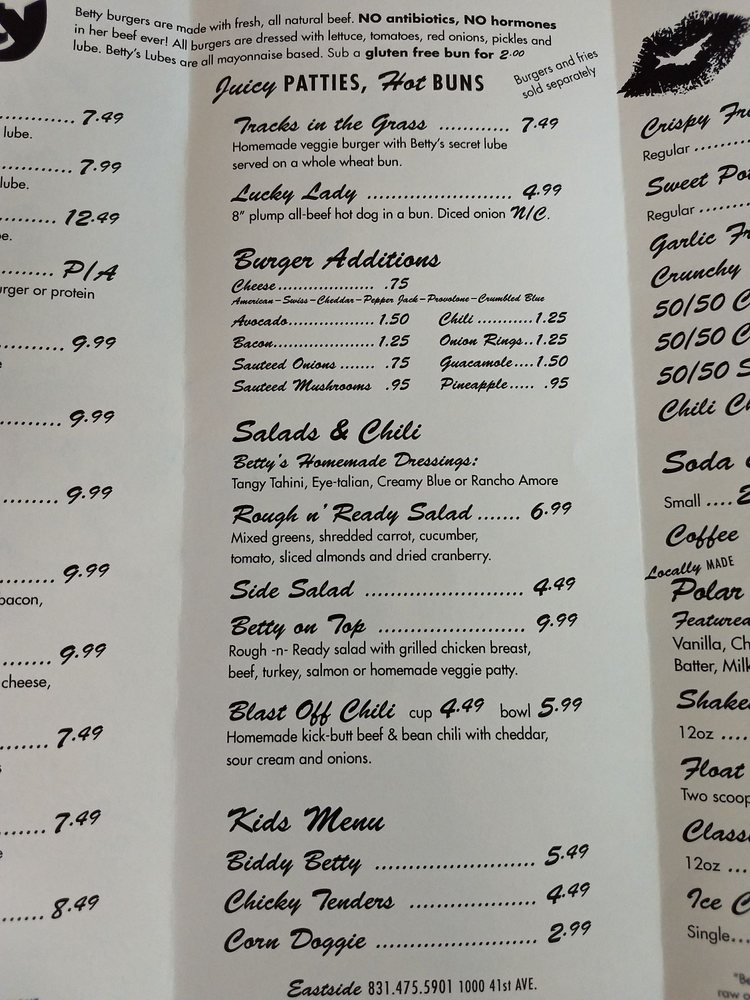 Betty burgers are made with fresh, all natural beef. NO antibiotics, NO hormones
in her beef ever! All burgers are dressed with lettuce, tomatoes, red onions, pickles and
lube. Betty's Lubes are all mayonnaise based. Sub a gluten free bun for 2.00
7.49
lube.
7.99
lube.
12.49
P/A
urger or protein
9.99
9.99
9.99
9.99
bacon,
9.99
cheese,
7.49
7.49
8.49
Juicy PATTIES, Hot BUNS
Burgers and fries
sold separately
Tracks in the Grass ............ 7.49
Homemade veggie burger with Betty's secret lube
served on a whole wheat bun.
Lucky Lady ........................ 4.99
8" plump all-beef hot dog in a bun. Diced onion N/C.
Burger Additions
Cheese................... .75
American-Swiss-Cheddar-Pepper Jack-Provolone-Crumbled Blue
Avocado................. 1.50 Chili ...........1.25
Bacon.................... 1.25 Onion Rings..1.25
Sauteed Onions ....... .75 Guacamole....1.50
Sauteed Mushrooms .95 Pineapple..... .95
Salads & Chili
Betty's Homemade Dressings:
Tangy Tahini, Eye-talian, Creamy Blue or Rancho Amore
Rough n' Ready Salad....... 6.99
Mixed greens, shredded carrot, cucumber,
tomato, sliced almonds and dried cranberry.
Side Salad .......................... 4.49
Betty on Top ........................ 9.99
Rough -n- Ready salad with grilled chicken breast,
beef, turkey, salmon or homemade veggie patty.
Blast Off Chili cup 4.49 bowl 5.99
Homemade kick-butt beef & bean chili with cheddar,
sour cream and onions.
Kids Menu
Biddy Betty .......................... 5.49
Chicky Tenders .................... 4.49
Corn Doggie ......................... 2.99
Eastside 831.475.5901 1000 41st AVE.
Crispy
Regular
Sweet
Regular
Garlic
Crunchy
50/50
50/50
50/50
Chili
Soda
Small ....
Coffee
Locally MADE
Polar
Featured
Vanilla,
Batter,
12oz ....
Float
Two
12oz ...
Ice
Single...